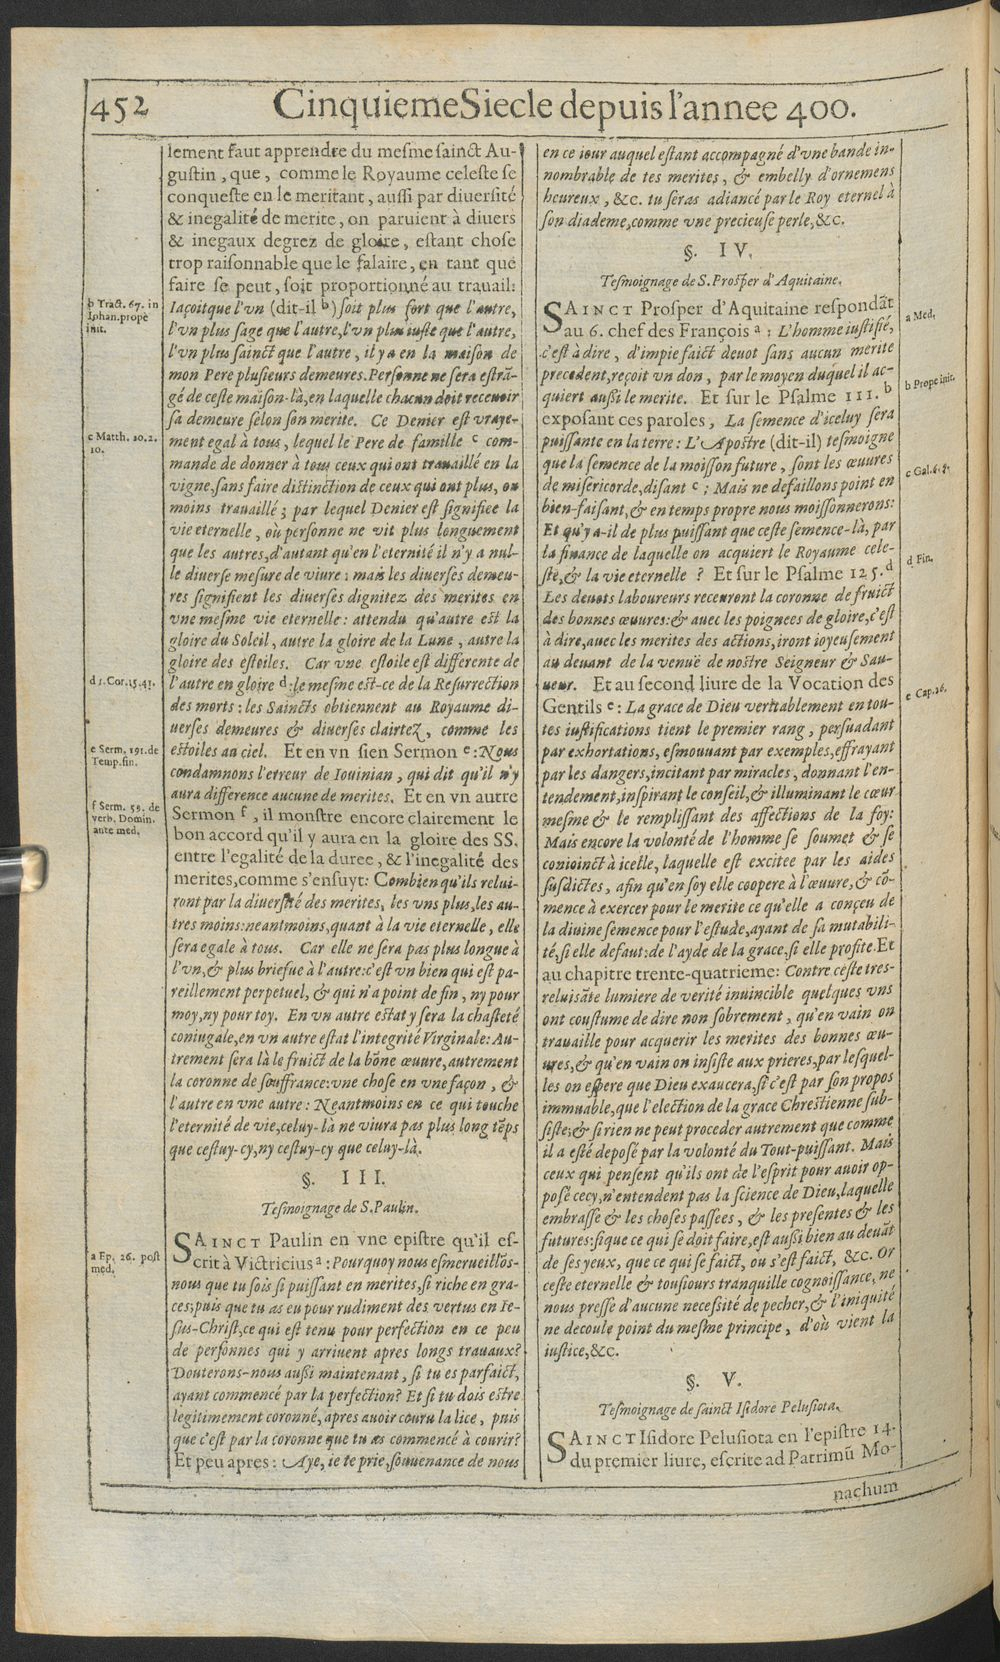 452
Cinquieme Siecle depuis l'annee 400.
lement faut apprendre du mesme sainct Au-
gustin, que, comme le Royaume celeste se
conqueste en le meritant, aussi par diuersité
& inegalité de merite, on paruient à diuers
& inegaux degrez de gloire, estant chose
trop raisonnable que le salaire, en tant que
faire se peut, soit proportionné au trauail:
Iaçoit que l'vn (dit-il b) soit plus fort que l'autre,
l'vn plus sage que l'autre, l'vn plus iuste que l'autre,
l'vn plus sainct que l'autre, il y a en la maison de
mon Pere plusieurs demeures. Personne ne sera estrã-
gé de ceste maison-là, en laquelle chacun doit receuoir
sa demeure selon son merite. Ce Denier est vraye-
ment egal à tous, lequel le Pere de famille c com-
mande de donner à tous ceux qui ont trauaillé en la
vigne, sans faire distinction de ceux qui ont plus, ou
moins trauaillé; par lequel Denier est signifiee la
vie eternelle, où personne ne vit plus longuement
que les autres, d'autant qu'en l'eternité il n'y a nul-
le diuerse mesure de viure: mais les diuerses demeu-
res signifient les diuerses dignitez des merites en
vne mesme vie eternelle: attendu qu'autre est la
gloire du Soleil, autre la gloire de la Lune, autre la
gloire des estoiles. Car vne estoile est differente de
l'autre en gloire d: le mesme est-ce de la Resurrection
des morts: les Saincts obtiennent au Royaume di-
uerses demeures & diuerses clairtez, comme les
estoiles au ciel. Et en vn sien Sermon e: Nous
condamnons l'erreur de Iouinian, qui dit qu'il n'y
aura difference aucune de merites. Et en vn autre
Sermon f, il monstre encore clairement le
bon accord qu'il y aura en la gloire des SS.
entre l'egalité de la duree, & l'inegalité des
merites, comme s'ensuyt: Combien qu'ils relui-
ront par la diuersité des merites, les vns plus, les au-
tres moins: neantmoins, quant à la vie eternelle, elle
sera egale à tous. Car elle ne sera pas plus longue à
l'vn, & plus briefue à l'autre: c'est vn bien qui est pa-
reillement perpetuel, & qui n'a point de fin, ny pour
moy, ny pour toy. En vn autre estat y sera la chasteté
coniugale, en vn autre estat l'integrité Virginale: Au-
trement sera là le fruict de la bõne œuure, autrement
la coronne de souffrance: vne chose en vne façon, &
l'autre en vne autre: Neantmoins en ce qui touche
l'eternité de vie, celuy-là ne viura pas plus long tẽps
que cestuy-cy, ny cestuy-cy que celuy-là.
§. III.
Tesmoignage de S. Paulin.
SAINCT Paulin en vne epistre qu'il es-
crit à Victricius a: Pourquoy nous esmerueillõs-
nous que tu sois si puissant en merites, si riche en gra-
ces; puis que tu as eu pour rudiment des vertus en Ie-
sus-Christ, ce qui est tenu pour perfection en ce peu
de personnes qui y arriuent apres longs trauaux?
Douterons-nous aussi maintenant, si tu es parfaict,
ayant commencé par la perfection? Et si tu dois estre
legitimement coronné, apres auoir couru la lice, puis
que c'est par la coronne que tu as commencé à courir?
Et peu apres: Aye, ie te prie, souuenance de nous
b Tract. 67. in
Iohan. propè
init.
c Matth. 20. 2.
10.
d 1. Cor. 15. 41.
e Serm. 191. de
Temp. fin.
f Serm. 59. de
verb. Domin.
ante med.
a Ep. 26. post
med.
en ce iour auquel estant accompagné d'vne bande in-
nombrable de tes merites, & embelly d'ornemens
heureux, &c. tu seras adiancé par le Roy eternel à
son diademe, comme vne precieuse perle, &c.
§. IV.
Tesmoignage de S. Prosper d'Aquitaine.
SAINCT Prosper d'Aquitaine respondãt
au 6. chef des François a: L'homme iustifié,
c'est à dire, d'impie faict deuot sans aucun merite
precedent, reçoit vn don, par le moyen duquel il ac-
quiert aussi le merite. Et sur le Psalme 111. b
exposant ces paroles, La semence d'iceluy sera
puissante en la terre: L'Apostre (dit-il) tesmoigne
que la semence de la moisson future, sont les œuures
de misericorde, disant c; Mais ne defaillons point en
bien-faisant, & en temps propre nous moissonnerons:
Et qu'y a-il de plus puissant que ceste semence-là, par
la finance de laquelle on acquiert le Royaume cele-
ste, & la vie eternelle? Et sur le Psalme 125. d
Les deuots laboureurs receuront la coronne de fruict
des bonnes œuures: & auec les poignees de gloire, c'est
à dire, auec les merites des actions, iront ioyeusement
au deuant de la venuë de nostre Seigneur & Sau-
ueur. Et au second liure de la Vocation des
Gentils e: La grace de Dieu veritablement en tou-
tes iustifications tient le premier rang, persuadant
par exhortations, esmouuant par exemples, effrayant
par les dangers, incitant par miracles, donnant l'en-
tendement, inspirant le conseil, & illuminant le cœur
mesme & le remplissant des affections de la foy:
Mais encore la volonté de l'homme se soumet & se
conioinct à icelle, laquelle est excitee par les aides
susdictes, afin qu'en soy elle coopere à l'œuure, & cõ-
mence à exercer pour le merite ce qu'elle a conçeu de
la diuine semence pour l'estude, ayant de sa mutabili-
té, si elle defaut: de l'ayde de la grace, si elle profite. Et
au chapitre trente-quatrieme: Contre ceste tres-
reluisãte lumiere de verité inuincible quelques vns
ont coustume de dire non sobrement, qu'en vain on
trauaille pour acquerir les merites des bonnes œu-
ures, & qu'en vain on insiste aux prieres, par lesquel-
les on espere que Dieu exaucera, si c'est par son propos
immuable, que l'election de la grace Chrestienne sub-
siste; & si rien ne peut proceder autrement que comme
il a esté deposé par la volonté du Tout-puissant. Mais
ceux qui pensent qu'ils ont de l'esprit pour auoir op-
posé cecy, n'entendent pas la science de Dieu, laquelle
embrasse & les choses passees, & les presentes & les
futures: si que ce qui se doit faire, est aussi bien au deuãt
de ses yeux, que ce qui se faict, ou s'est faict, &c. Or
ceste eternelle & tousiours tranquille cognoissance, ne
nous presse d'aucune necessité de pecher, & l'iniquité
ne decoule point du mesme principe, d'où vient la
iustice, &c.
§. V.
Tesmoignage de sainct Isidore Pelusiota.
SAINCT Isidore Pelusiota en l'epistre 14.
du premier liure, escrite ad Patrimũ Mo-
nachum
a Med.
b Prope init.
c Gal. 6. 9.
d Fin.
e Cap. 26.